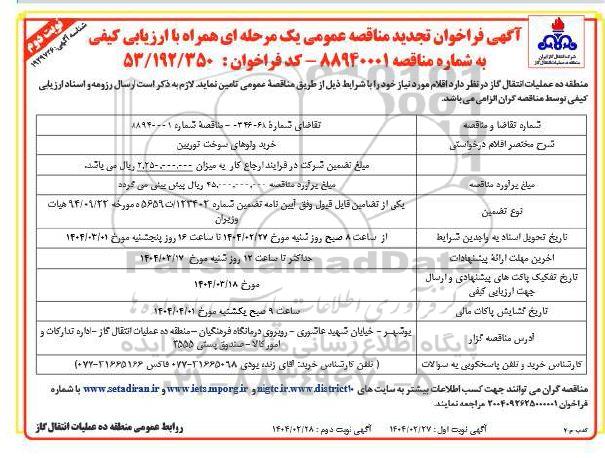 نوبت دوم
شناسه آگهی: ۱۹۲۹۷۳۶
آگهی فراخوان تجدید مناقصه عمومی یک مرحله ای همراه با ارزیابی کیفی
به شماره مناقصه ۸۸۹۴۰۰۰۱ - کد فراخوان : ۵۳/۱۹۲/۳۵۰
شرکت ملی گاز ایران
منطقه ده عملیات انتقال گاز در نظر دارد اقلام مورد نیاز خود را با شرایط ذیل از طریق مناقصه عمومی تامین نماید. لازم به ذکر است ارسال رزومه و اسناد ارزیابی
کیفی توسط مناقصه گران الزامی می‌باشد.
شماره تقاضا و مناقصه
تقاضای شماره ۰۳۴۶۰۶۸ - مناقصه شماره ۸۸۹۴۰۰۰۱
شرح مختصر اقلام درخواستی
خرید ولوهای سوخت توربین
مبلغ تضمین شرکت در فرایند ارجاع کار به میزان ۲,۲۵۰,۰۰۰,۰۰۰ ریال می باشد.
مبلغ برآورد مناقصه
مبلغ برآورد مناقصه ۴۵,۰۰۰,۰۰۰,۰۰۰ ریال پیش بینی می گردد
نوع تضمین
یکی از تضامین قابل قبول وفق آیین نامه تضمین شماره ۱۲۳۴۰۲/ت۵۶۵۹ه مورخه ۹۴/۰۹/۲۲ هیات
وزیران
تاریخ تحویل اسناد به واجدین شرایط
از ساعت ۸ صبح روز شنبه مورخ ۱۴۰۴/۰۲/۲۷ تا ساعت ۱۶ روز پنجشنبه مورخ ۱۴۰۴/۰۳/۰۱
آخرین مهلت ارائه پیشنهادات
حداکثر تا ساعت ۱۲ روز شنبه مورخ ۱۴۰۴/۰۳/۱۷
تاریخ تفکیک پاکت های پیشنهادی و ارسال
جهت ارزیابی کیفی
مورخ ۱۴۰۴/۰۳/۱۸
تاریخ گشایش پاکات مالی
ساعت ۹ صبح یکشنبه ۱۴۰۴/۰۴/۰۱
آدرس مناقصه گزار
بوشهر - خیابان شهید عاشوری - روبروی درمانگاه فرهنگیان - منطقه ده عملیات انتقال گاز - اداره تدارکات و
امور کالا - صندوق پستی ۳۵۵۵
کارشناس خرید و تلفن پاسخگویی به سوالات
( تلفن کارشناس خرید: آقای زنده بودی ۳۱۶۶۵۰۶۸-۰۷۷ فاکس ۳۱۶۶۵۱۶۶-۰۷۷)
مناقصه گران می توانند جهت کسب اطلاعات بیشتر به سایت های nigtc.ir.www.district10 و www.iets.mporg.ir و www.setadiran.ir با شماره
فراخوان ۲۰۰۴۰۹۲۶۲۵۰۰۰۰۰۱ مراجعه نمایند.
آگهی نوبت اول: ۱۴۰۴/۰۲/۲۷ آگهی نوبت دوم : ۱۴۰۴/۰۲/۲۸
روابط عمومی منطقه ده عملیات انتقال گاز
ParsNamadData